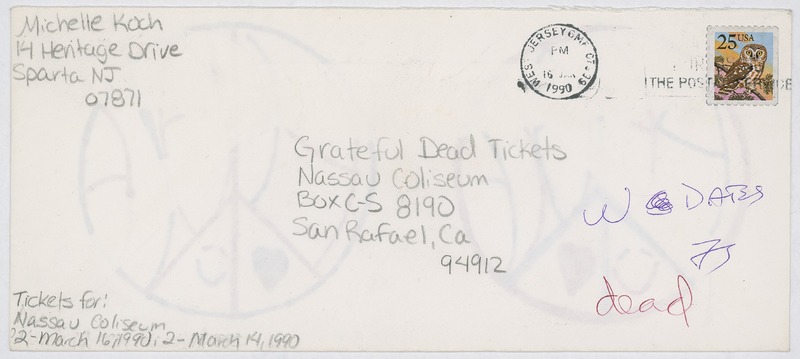 Michelle Koch
14 Heritage Drive
Sparta NJ
07871
WEST JERSEY GMF 07-09
PM
16 JAN
1990
THE POSTAL SERVICE
25 USA
Grateful Dead Tickets
Nassau Coliseum
Box C-S 8190
San Rafael, Ca
94912
W DATES
dead
Tickets for:
Nassau Coliseum
2-March 16, 1990; 2-March 14, 1990